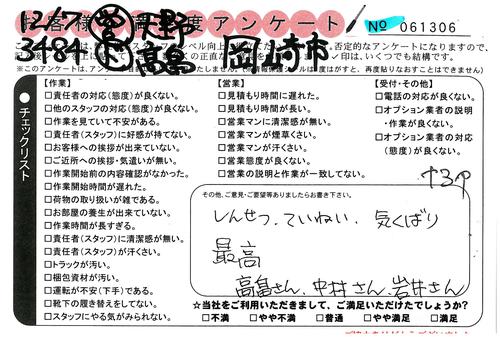 お客様満足度アンケート
№ 061306
12/7 天野
3484 高畠 岡崎市
否定的なアンケートになりますので、
✓印は、いくつでも結構です。
【作業】
□責任者の対応(態度)が良くない。
□他のスタッフの対応(態度)が良くない。
□作業を見ていて不安がある。
□責任者(スタッフ)に好感が持てない。
□お客様への挨拶が出来ていない。
□ご近所への挨拶・気遣いが無い。
□作業開始前の内容確認がなかった。
□作業開始時間が遅れた。
□荷物の取り扱いが雑である。
□お部屋の養生が出来ていない。
□作業時間が長すぎる。
□責任者(スタッフ)に清潔感が無い。
□責任者(スタッフ)が汗くさい。
□トラックが汚い。
□梱包資材が汚い。
□運転が不安(下手)である。
□靴下の履き替えをしてない。
□スタッフにやる気がみられない。
【営業】
□見積もり時間に遅れた。
□見積もり時間が長い。
□営業マンに清潔感が無い。
□営業マンが煙草くさい。
□営業マンが汗くさい。
□営業態度が良くない。
□営業の説明と作業が一致してない。
【受付・その他】
□電話の対応が良くない。
□オプション業者の説明
・作業が良くない。
□オプション業者の対応
(態度)が良くない。
●チェックリスト
その他、ご意見・ご要望等ありましたらお書き下さい。
しんせつ、ていねい、気くばり
最高
高畠さん、中井さん、岩井さん
☆当社をご利用いただきまして、ご満足いただけたでしょうか?
□不満 □やや不満 □普通 □やや満足 □満足